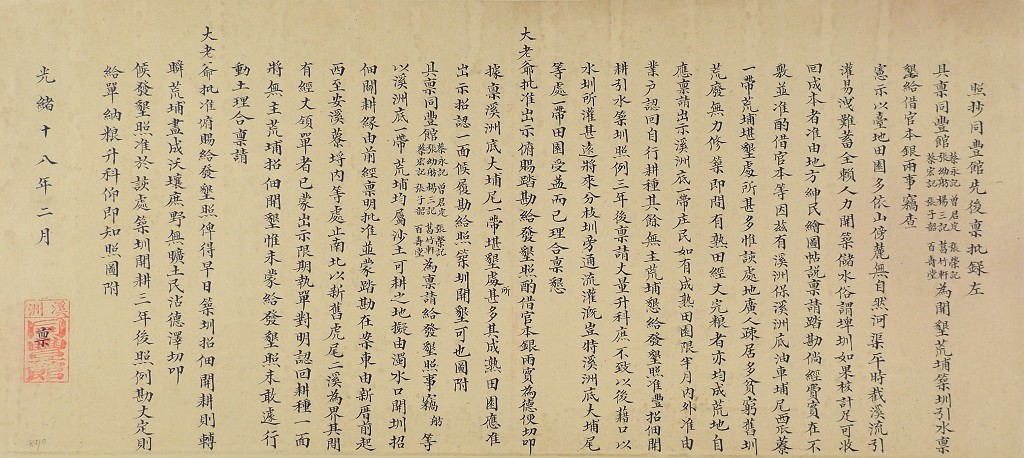 照抄同豐館先後稟批錄左
具稟同豐館 蔡永記 曾君定 張榮記 張幼舫 楊三記 葛竹軒 蔡宏記 張子韶 百壽堂 為開墾荒埔築圳引水稟
懇給借官本銀兩事竊查
憲示以臺地田園多依山傍麓無自然河渠平時截溪流引
灌易洩難蓄全賴人力開築儲水俗謂埤圳如果核計足可收
回成本者准由地方紳民繪圖帖說稟請踏勘倘經費實在不
敷並准酌借官本等因茲有溪洲保溪洲底油車埔尾西畿蔡
一帶荒埔堪墾處所甚多惟該處地廣人疎居多貧窮舊圳
荒廢無力修築即間有熟田經丈完粮者亦均成荒地自
應稟請出示溪洲底一帶庄民如有成熟田園限半月內外准由
業戶認回自行耕種其餘無主荒埔懇給發墾照准豐招佃開
耕引水築圳照例三年後稟請丈量升科庶不致以後藉口以
水圳所灌甚遠將來分枝圳旁通流灌溉豈特溪洲底大埔尾
等處一帶田園受益而已理合稟懇
大老爺批准出示俯賜踏勘給發墾照酌借官本銀兩實為德便切叩
據稟溪洲底大埔尾一帶堪墾處所甚多其成熟田園應准
出示招認一面候履勘給照築圳開墾可也圖附
具稟同豐館 蔡永記 曾君定 張榮記 張幼舫 楊三記 葛竹軒 蔡宏記 張子韶 百壽堂 為稟請給發墾照事竊舫等
以溪洲底一帶荒埔均屬沙土可耕之地擬由濁水口開圳招
佃開耕緣由前經稟明批准並蒙踏勘在案東由新厝前起
西至安溪藔埒內等處止南北以新舊虎尾二溪為界其間
有經丈領單者已蒙出示限期執單對明認回耕種一面
將無主荒埔招佃開墾惟未蒙給發墾照未敢遽行
動土理合稟請
大老爺批准俯賜給發墾照俾得早日築圳招佃開耕則轉
瞬荒埔盡成沃壤庶野無曠土民沾德澤切叩
候發墾照准於該處築圳開耕三年後照例勘丈定則
給單納粮升科仰即知照圖附
光緒十八年二月
稟